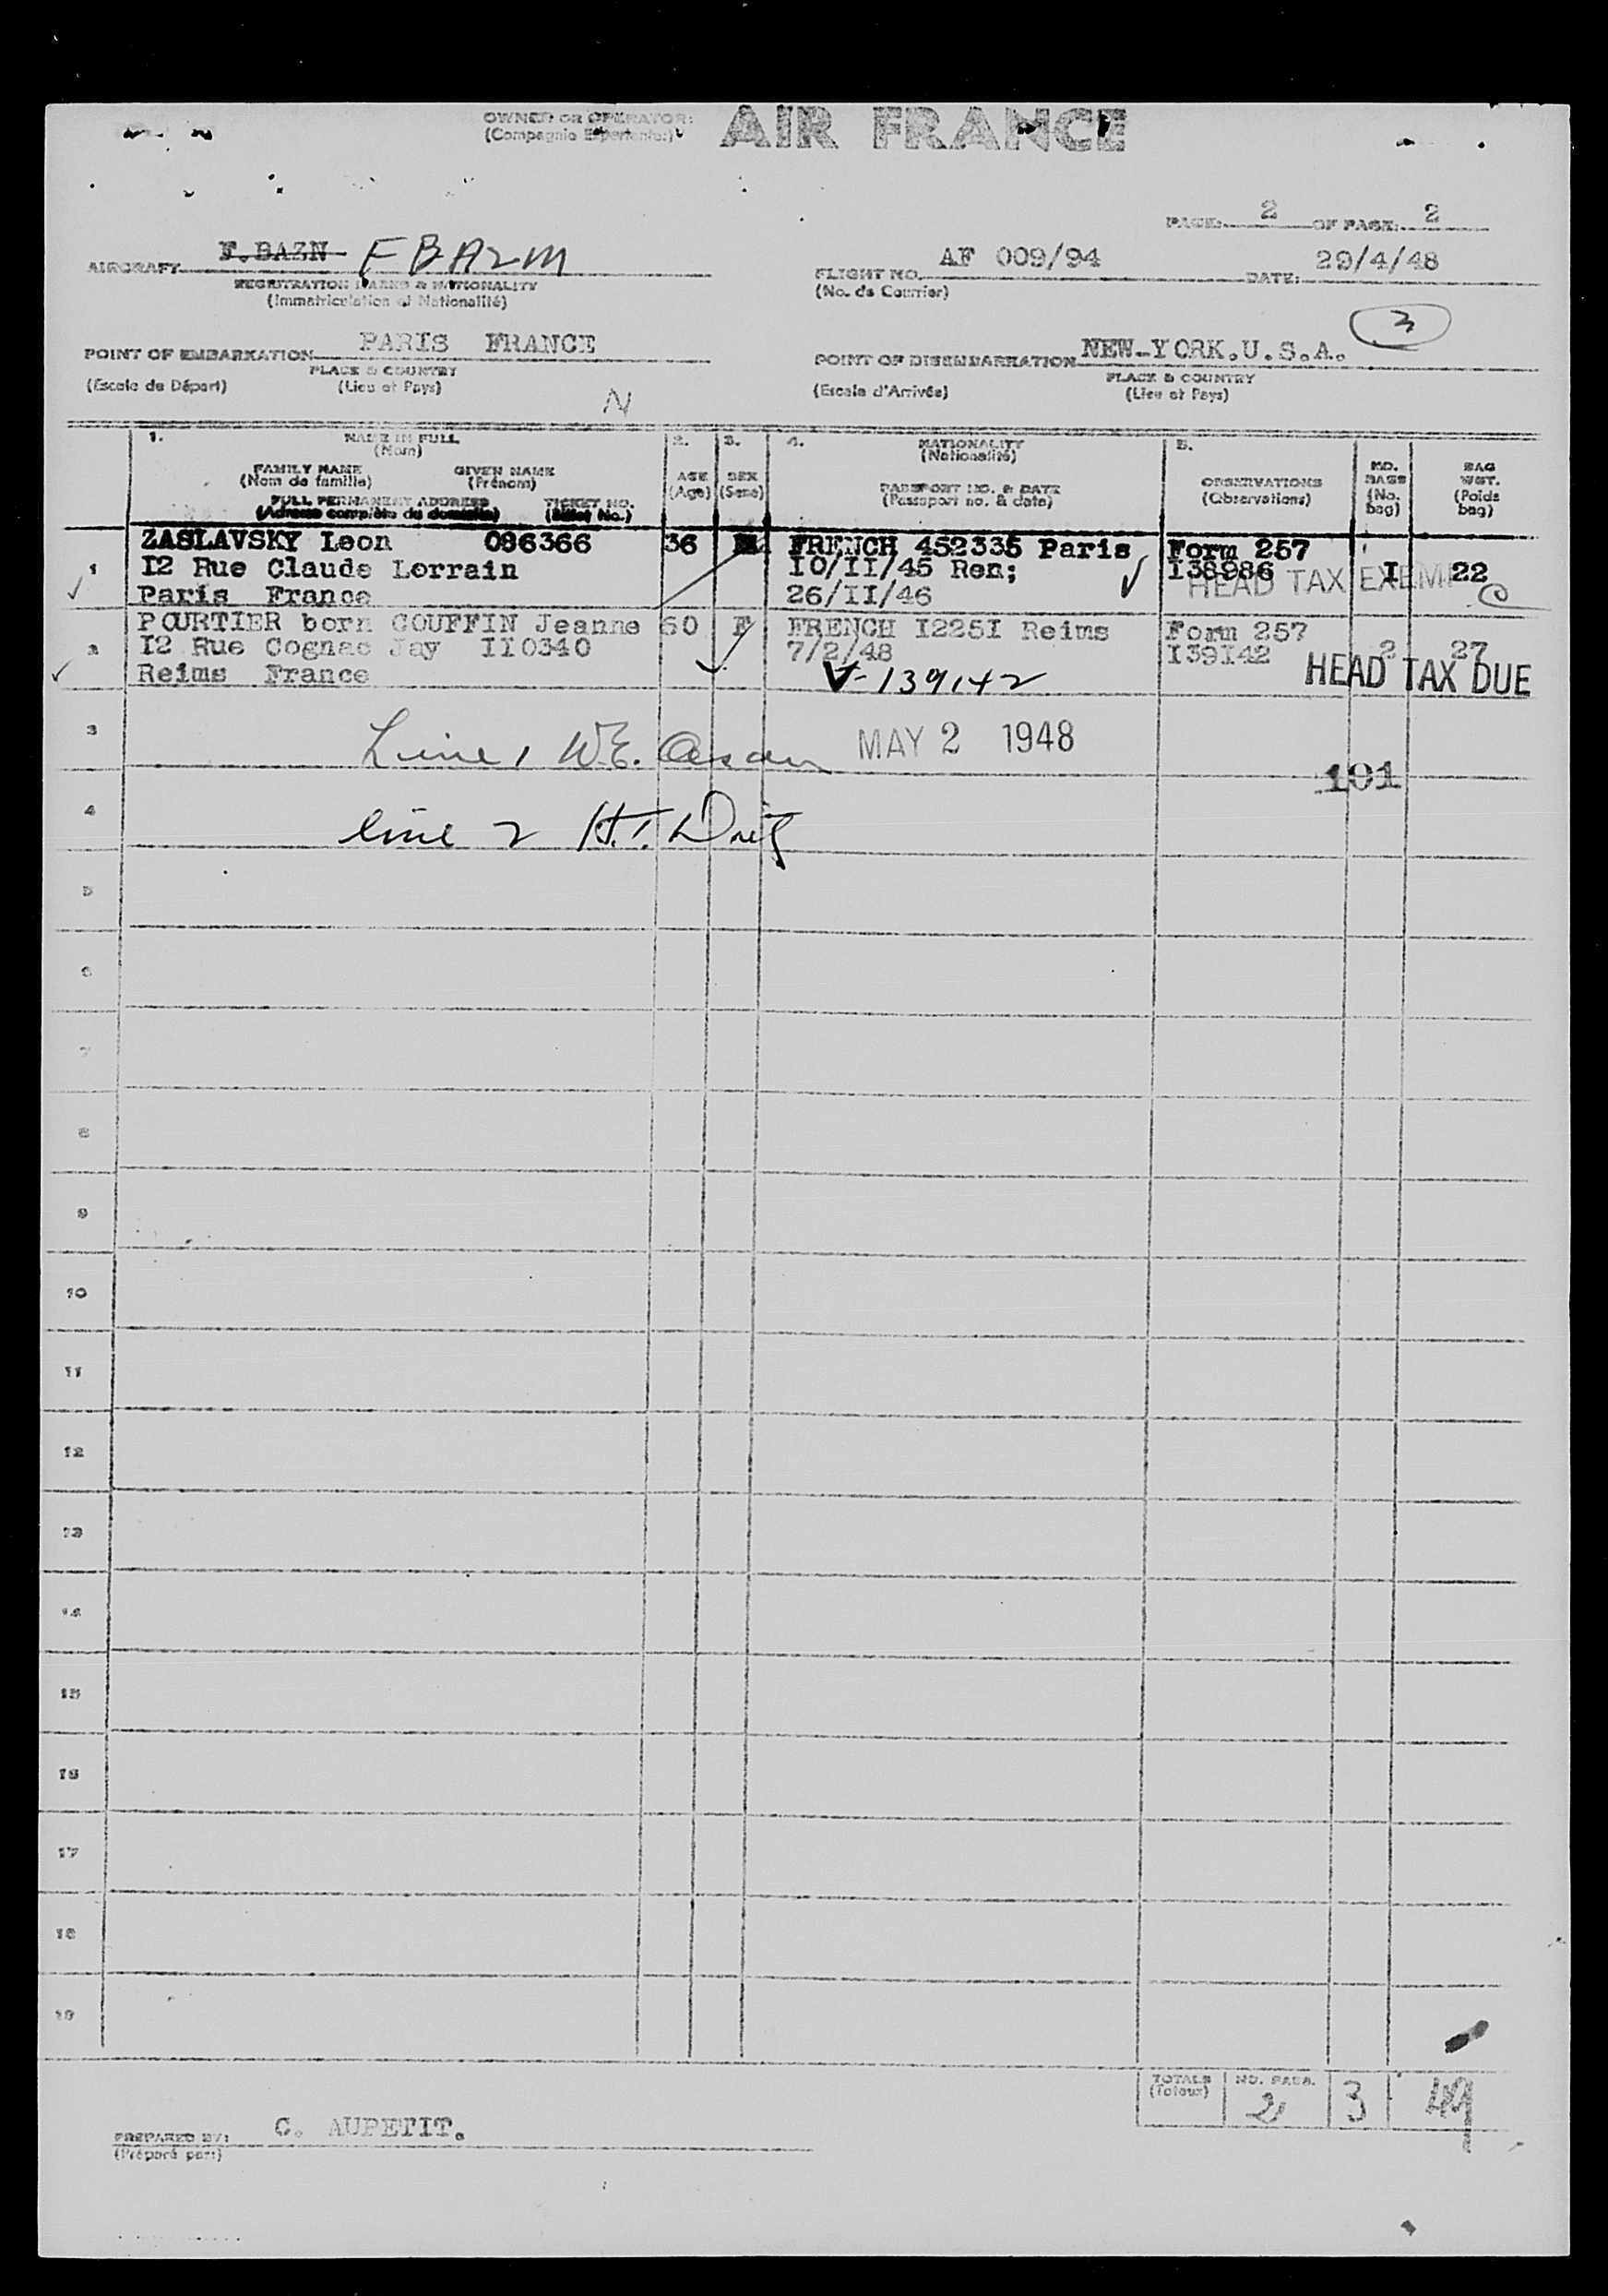 OWNER OR OPERATOR: AIR FRANCE
(Compagnie Exportante:)
PAGE: 2 OF PAGE: 2
AIRCRAFT F.BAZN FBAZM
REGISTRATION MARKS & NATIONALITY
(Immatriculation et Nationalité)
FLIGHT NO. AF 009/94 DATE: 29/4/48
(No. de Courrier)
3
POINT OF EMBARKATION PARIS FRANCE
PLACE & COUNTRY
(Escale de Départ) (Lieu et Pays)
POINT OF DISEMBARKATION NEW-YORK.U.S.A.
PLACE & COUNTRY
(Escale d'Arrivée) (Lieu et Pays)
N
1. NAME IN FULL 2. 3. 4. NATIONALITY 5.
(Nom) (Nationalité)
FAMILY NAME GIVEN NAME AGE SEX OBSERVATIONS NO. BAGS BAG WGT.
(Nom de famille) (Prénom) (Age) (Sexe) PASSPORT NO. & DATE (Observations) (No. bag) (Poids bag)
FULL PERMANENT ADDRESS TICKET NO. (Passeport no. & date)
(Adresse complète du domicile) (Billet No.)
1 ZASLAVSKY Leon 086366 36 M FRENCH 452335 Paris Form 257
I2 Rue Claude Lorrain I0/II/45 Ren; I38986 I 22
Paris France 26/II/46 HEAD TAX EXEMP
2 POURTIER born GOUFFIN Jeanne 60 F FRENCH I225I Reims Form 257
I2 Rue Cognac Jay II0340 7/2/48 I39I42 2 27
Reims France V-139142 HEAD TAX DUE
3 Line 1 W.E. MAY 2 1948
101
4 line 2 H.T.
5
6
7
8
9
10
11
12
13
14
15
16
17
18
19
TOTALS NO. PASS.
(Totaux) 2 3 49
PREPARED BY: C. AUPETIT.
(Préparé par:)